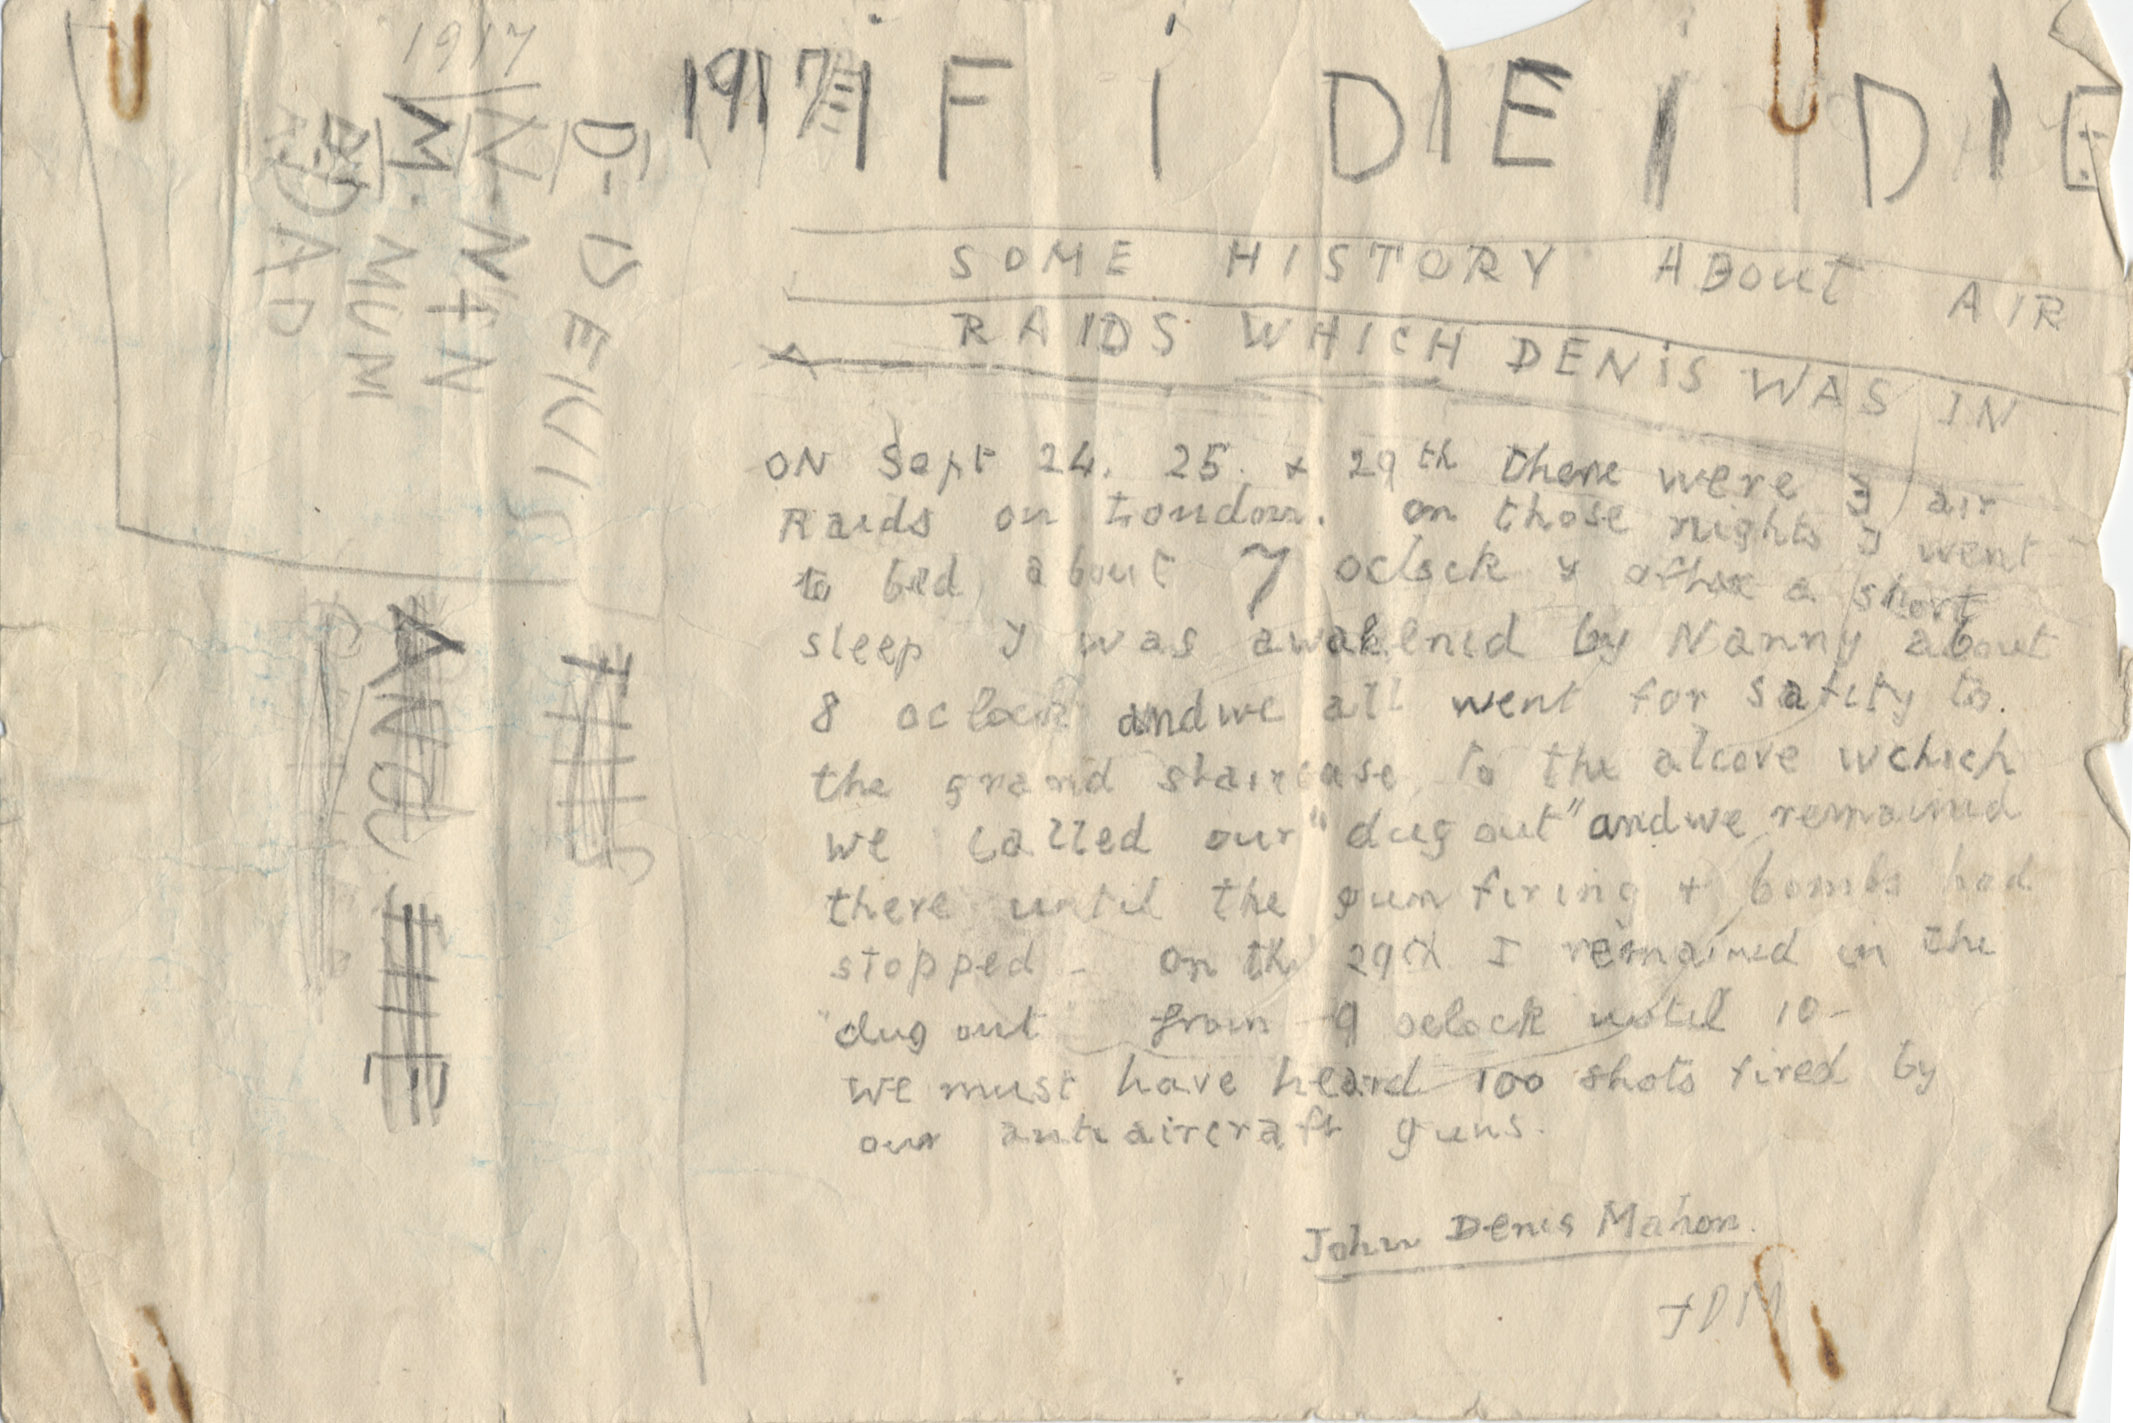 1917 iF i DIE i DIE
SOME HISTORY ABout AIR
RAIDS WHICH DENiS WAS IN
ON Sept 24. 25. & 29th there were 3 air
Raids on London. on those nights I went
to bed about 7 oclock & after a short
sleep I was awakened by Nanny about
8 oclock and we all went for safety to
the grand staircase, to the alcove wchich
we called our "dug out" and we remained
there until the gun firing + bombs had
stopped - on the 29th I remained in the
"dug out from 9 oclock until 10-
we must have heard 100 shots fired by
our anti aircraft guns.
John Denis Mahon.
JDM
1917
D-DENI
N. N+N
M. MUM
DAD